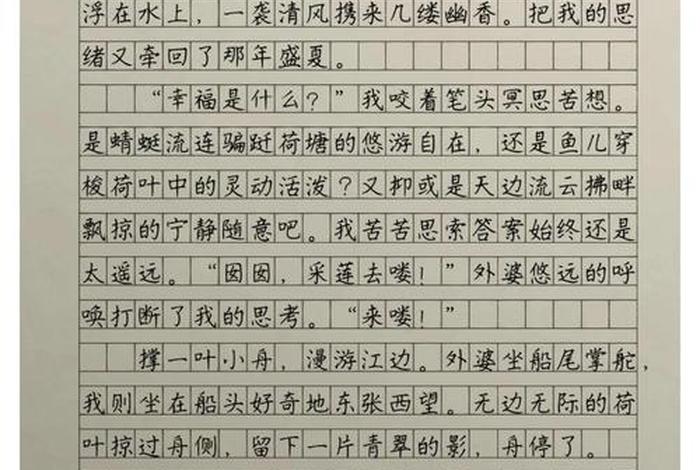 浮在水上，一袭清风携来几缕幽香。把我的思
绪又牵回了那年盛夏。
“幸福是什么？”我咬着笔头冥思苦想。
是蜻蜓流连骗跹荷塘的悠游自在，还是鱼儿穿
梭荷叶中的灵动活泼？又抑或是天边流云拂畔
飘掠的宁静随意吧。我苦苦思索答案始终还是
太遥远。“囡囡，采莲去喽！”外婆悠远的呼
唤打断了我的思考。“来喽！”
撑一叶小舟，漫游江边。外婆坐船尾掌舵，
我则坐在船头好奇地东张西望。无边无际的荷
叶掠过舟侧，留下一片青翠的影，舟停了。